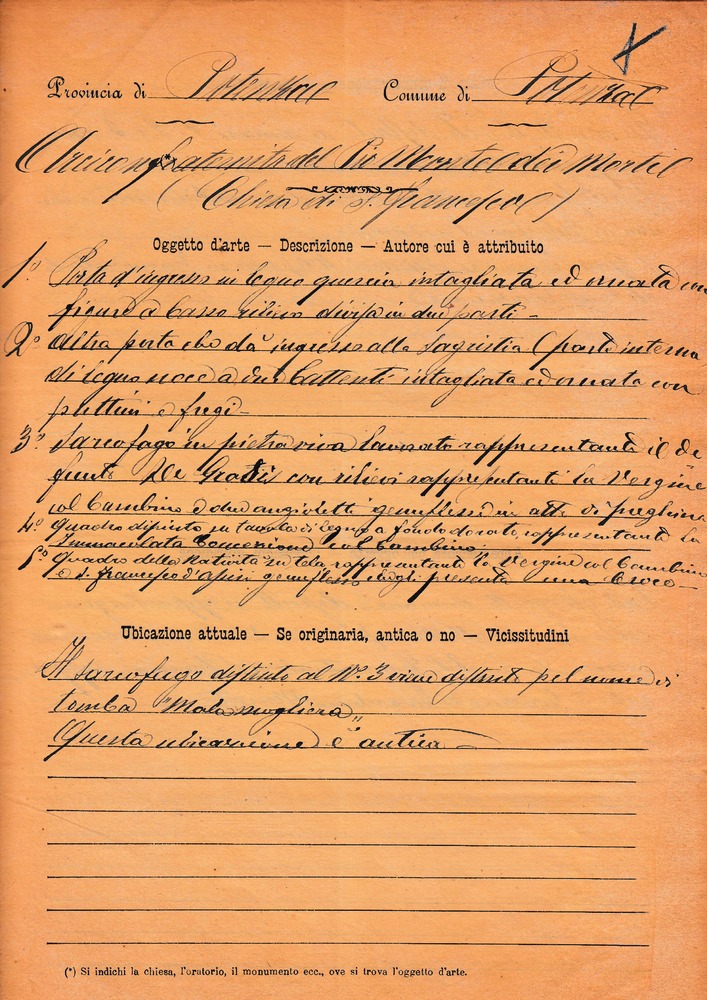 Provincia di Potenza Comune di Potenza
(*) Arciconfraternita del Pio Monte dei Morti
(Chiesa di S. Francesco)
Oggetto d'arte — Descrizione — Autore cui è attribuito
1° Porta d'ingresso in legno quercia intagliata ed ornata con
figure a basso rilievo divisa in due parti -
2° Altra porta che dà ingresso alla Sagristia (parte interna
di legno noce a due battenti intagliata ed ornata con
puttini e fregi -
3° Sarcofago in pietra viva lavorato rappresentante il de
funto De Grassis con rilievi rappresentanti la Vergine
col bambino e due angioletti genuflessi in atto di preghiera
4° Quadro dipinto su tavola di legno a fondo dorato, rappresentante la
Immacolata Concezione col bambino -
5° Quadro della Natività su tela rappresentante la Vergine col Bambino
e S. Francesco d'Assisi genuflesso che gli presenta una Croce -
Ubicazione attuale — Se originaria, antica o no — Vicissitudini
Il sarcofago distinto al N°. 3 viene distinto pel nome di
tomba "Mala mogliera„
Questa ubicazione è antica -
(*) Si indichi la chiesa, l'oratorio, il monumento ecc., ove si trova l'oggetto d'arte.